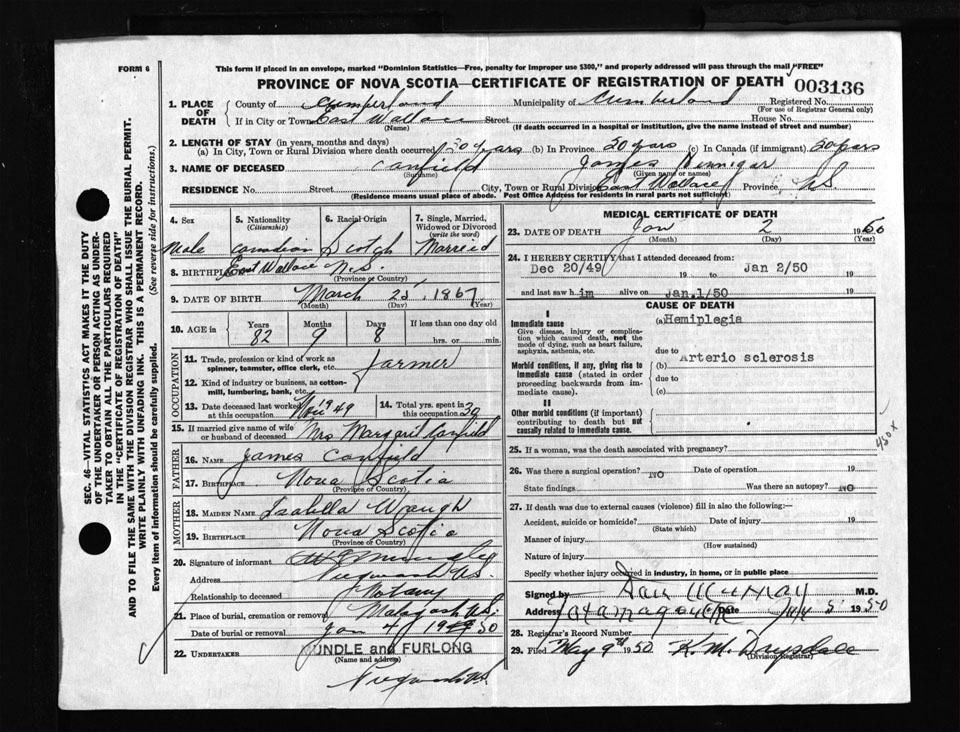 FORM 6
This form if placed in an envelope, marked "Dominion Statistics—Free, penalty for improper use $300," and properly addressed will pass through the mail "FREE"
PROVINCE OF NOVA SCOTIA—CERTIFICATE OF REGISTRATION OF DEATH
003136
1. PLACE OF DEATH County of Cumberland Municipality of Cumberland Registered No.
(For use of Registrar General only)
If in City or Town East Wallace Street House No.
(Name) (If death occurred in a hospital or institution, give the name instead of street and number)
2. LENGTH OF STAY (in years, months and days)
(a) In City, Town or Rural Division where death occurred 30 years (b) In Province 50 years (c) In Canada (if immigrant) years
3. NAME OF DECEASED Canfield James
(Surname) (Given name or names)
RESIDENCE No. Street City, Town or Rural Division East Wallace Province NS
(Residence means usual place of abode. Post Office Address for residents in rural parts not sufficient)
4. Sex Male
5. Nationality (Citizenship) Canadian
6. Racial Origin Scotch
7. Single, Married, Widowed or Divorced (write the word) Married
8. BIRTHPLACE East Wallace N.S.
(Province or Country)
9. DATE OF BIRTH March 25, 1867
(Month) (Day) (Year)
10. AGE in Years Months Days If less than one day old
82 9 8 hrs. or min.
OCCUPATION
11. Trade, profession or kind of work as spinner, teamster, office clerk, etc. Farmer
12. Kind of industry or business, as cotton-mill, lumbering, bank, etc.
13. Date deceased last worked at this occupation Nov 1949
14. Total yrs. spent in this occupation
15. If married give name of wife or husband of deceased Mrs Margaret Canfield
FATHER
16. NAME James Canfield
17. BIRTHPLACE Nova Scotia
(Province or Country)
MOTHER
18. MAIDEN NAME Isabella Waugh
19. BIRTHPLACE Nova Scotia
(Province or Country)
20. Signature of informant
Address Pugwash N.S.
Relationship to deceased Notary
21. Place of burial, cremation or removal Malagash N.S.
Date of burial or removal Jan 4 1950
22. UNDERTAKER UNDLE and FURLONG
(Name and address)
Pugwash N.S.
MEDICAL CERTIFICATE OF DEATH
23. DATE OF DEATH Jan 2 1950
(Month) (Day) (Year)
24. I HEREBY CERTIFY that I attended deceased from:
Dec 20/49 19 to Jan 2/50 19
and last saw him alive on Jan.1/50 19
CAUSE OF DEATH
I
Immediate cause (a) Hemiplegia
Give disease, injury or complication which caused death, not the mode of dying, such as heart failure, asphyxia, asthenia, etc.
due to
Morbid conditions, if any, giving rise to immediate cause (stated in order proceeding backwards from immediate cause).
(b) Arterio sclerosis
due to
(c)
II
Other morbid conditions (if important) contributing to death but not causally related to immediate cause.
450 x
25. If a woman, was the death associated with pregnancy?
26. Was there a surgical operation? NO Date of operation 19
State findings Was there an autopsy? NO
27. If death was due to external causes (violence) fill in also the following:—
Accident, suicide or homicide? Date of injury 19
(State which)
Manner of injury
(How sustained)
Nature of injury
Specify whether injury occurred in industry, in home, or in public place
Signed by Dan Murray M.D.
Address Tatamagouche Date 5 1950
28. Registrar's Record Number
29. Filed May 9th 1950 K. M. Drysdale
(Division Registrar)
SEC. 46—VITAL STATISTICS ACT MAKES IT THE DUTY
OF THE UNDERTAKER OR PERSON ACTING AS UNDER-
TAKER TO OBTAIN ALL THE PARTICULARS REQUIRED
IN THE "CERTIFICATE OF REGISTRATION OF DEATH"
AND TO FILE THE SAME WITH THE DIVISION REGISTRAR WHO SHALL ISSUE THE BURIAL PERMIT.
WRITE PLAINLY WITH UNFADING INK. THIS IS A PERMANENT RECORD.
Every item of information should be carefully supplied. (See reverse side for instructions.)